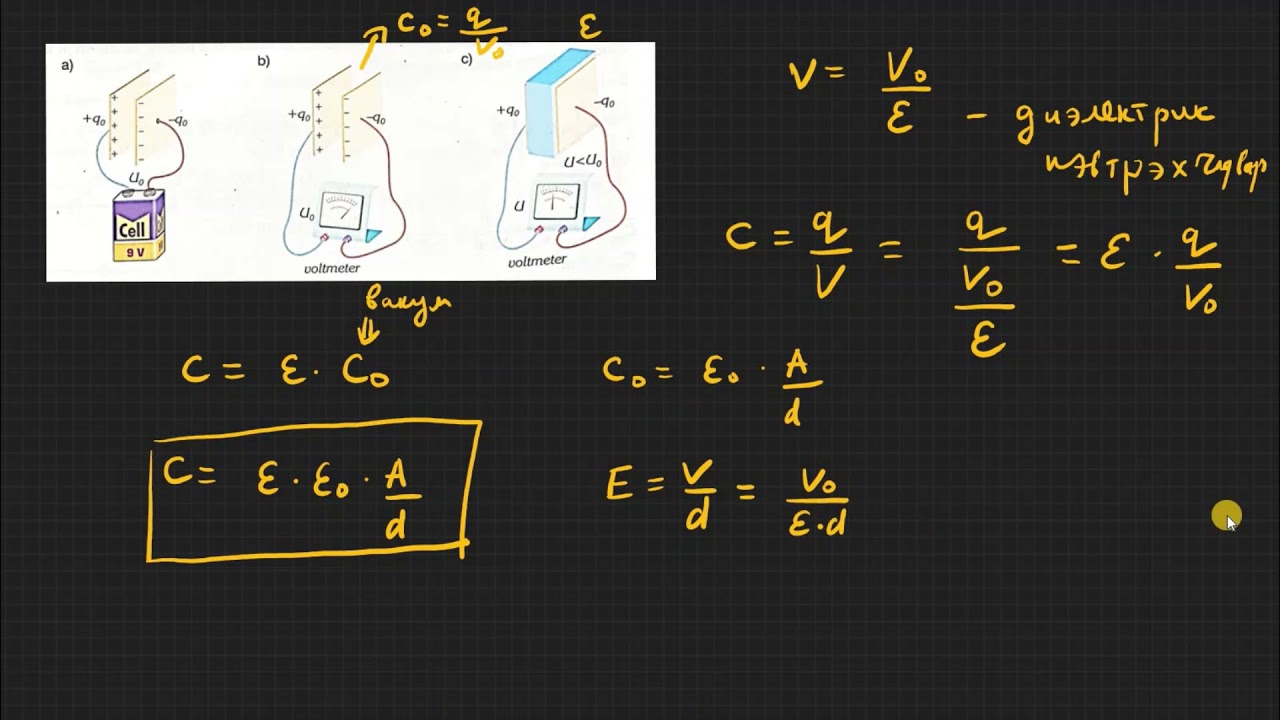 C₀ = q/V₀
ε
a)
b)
c)
+q₀ -q₀
+q₀ -q₀
+q₀ -q₀
U₀
Cell
9 V
U₀
voltmeter
U<U₀
U
voltmeter
V = V₀/ε - диэлектрик
нэвтрэх чадвар
C = q/V = q/(V₀/ε) = ε · q/V₀
вакум
⇓
C = ε · C₀
C₀ = ε₀ · A/d
C = ε · ε₀ · A/d
E = V/d = V₀/(ε·d)